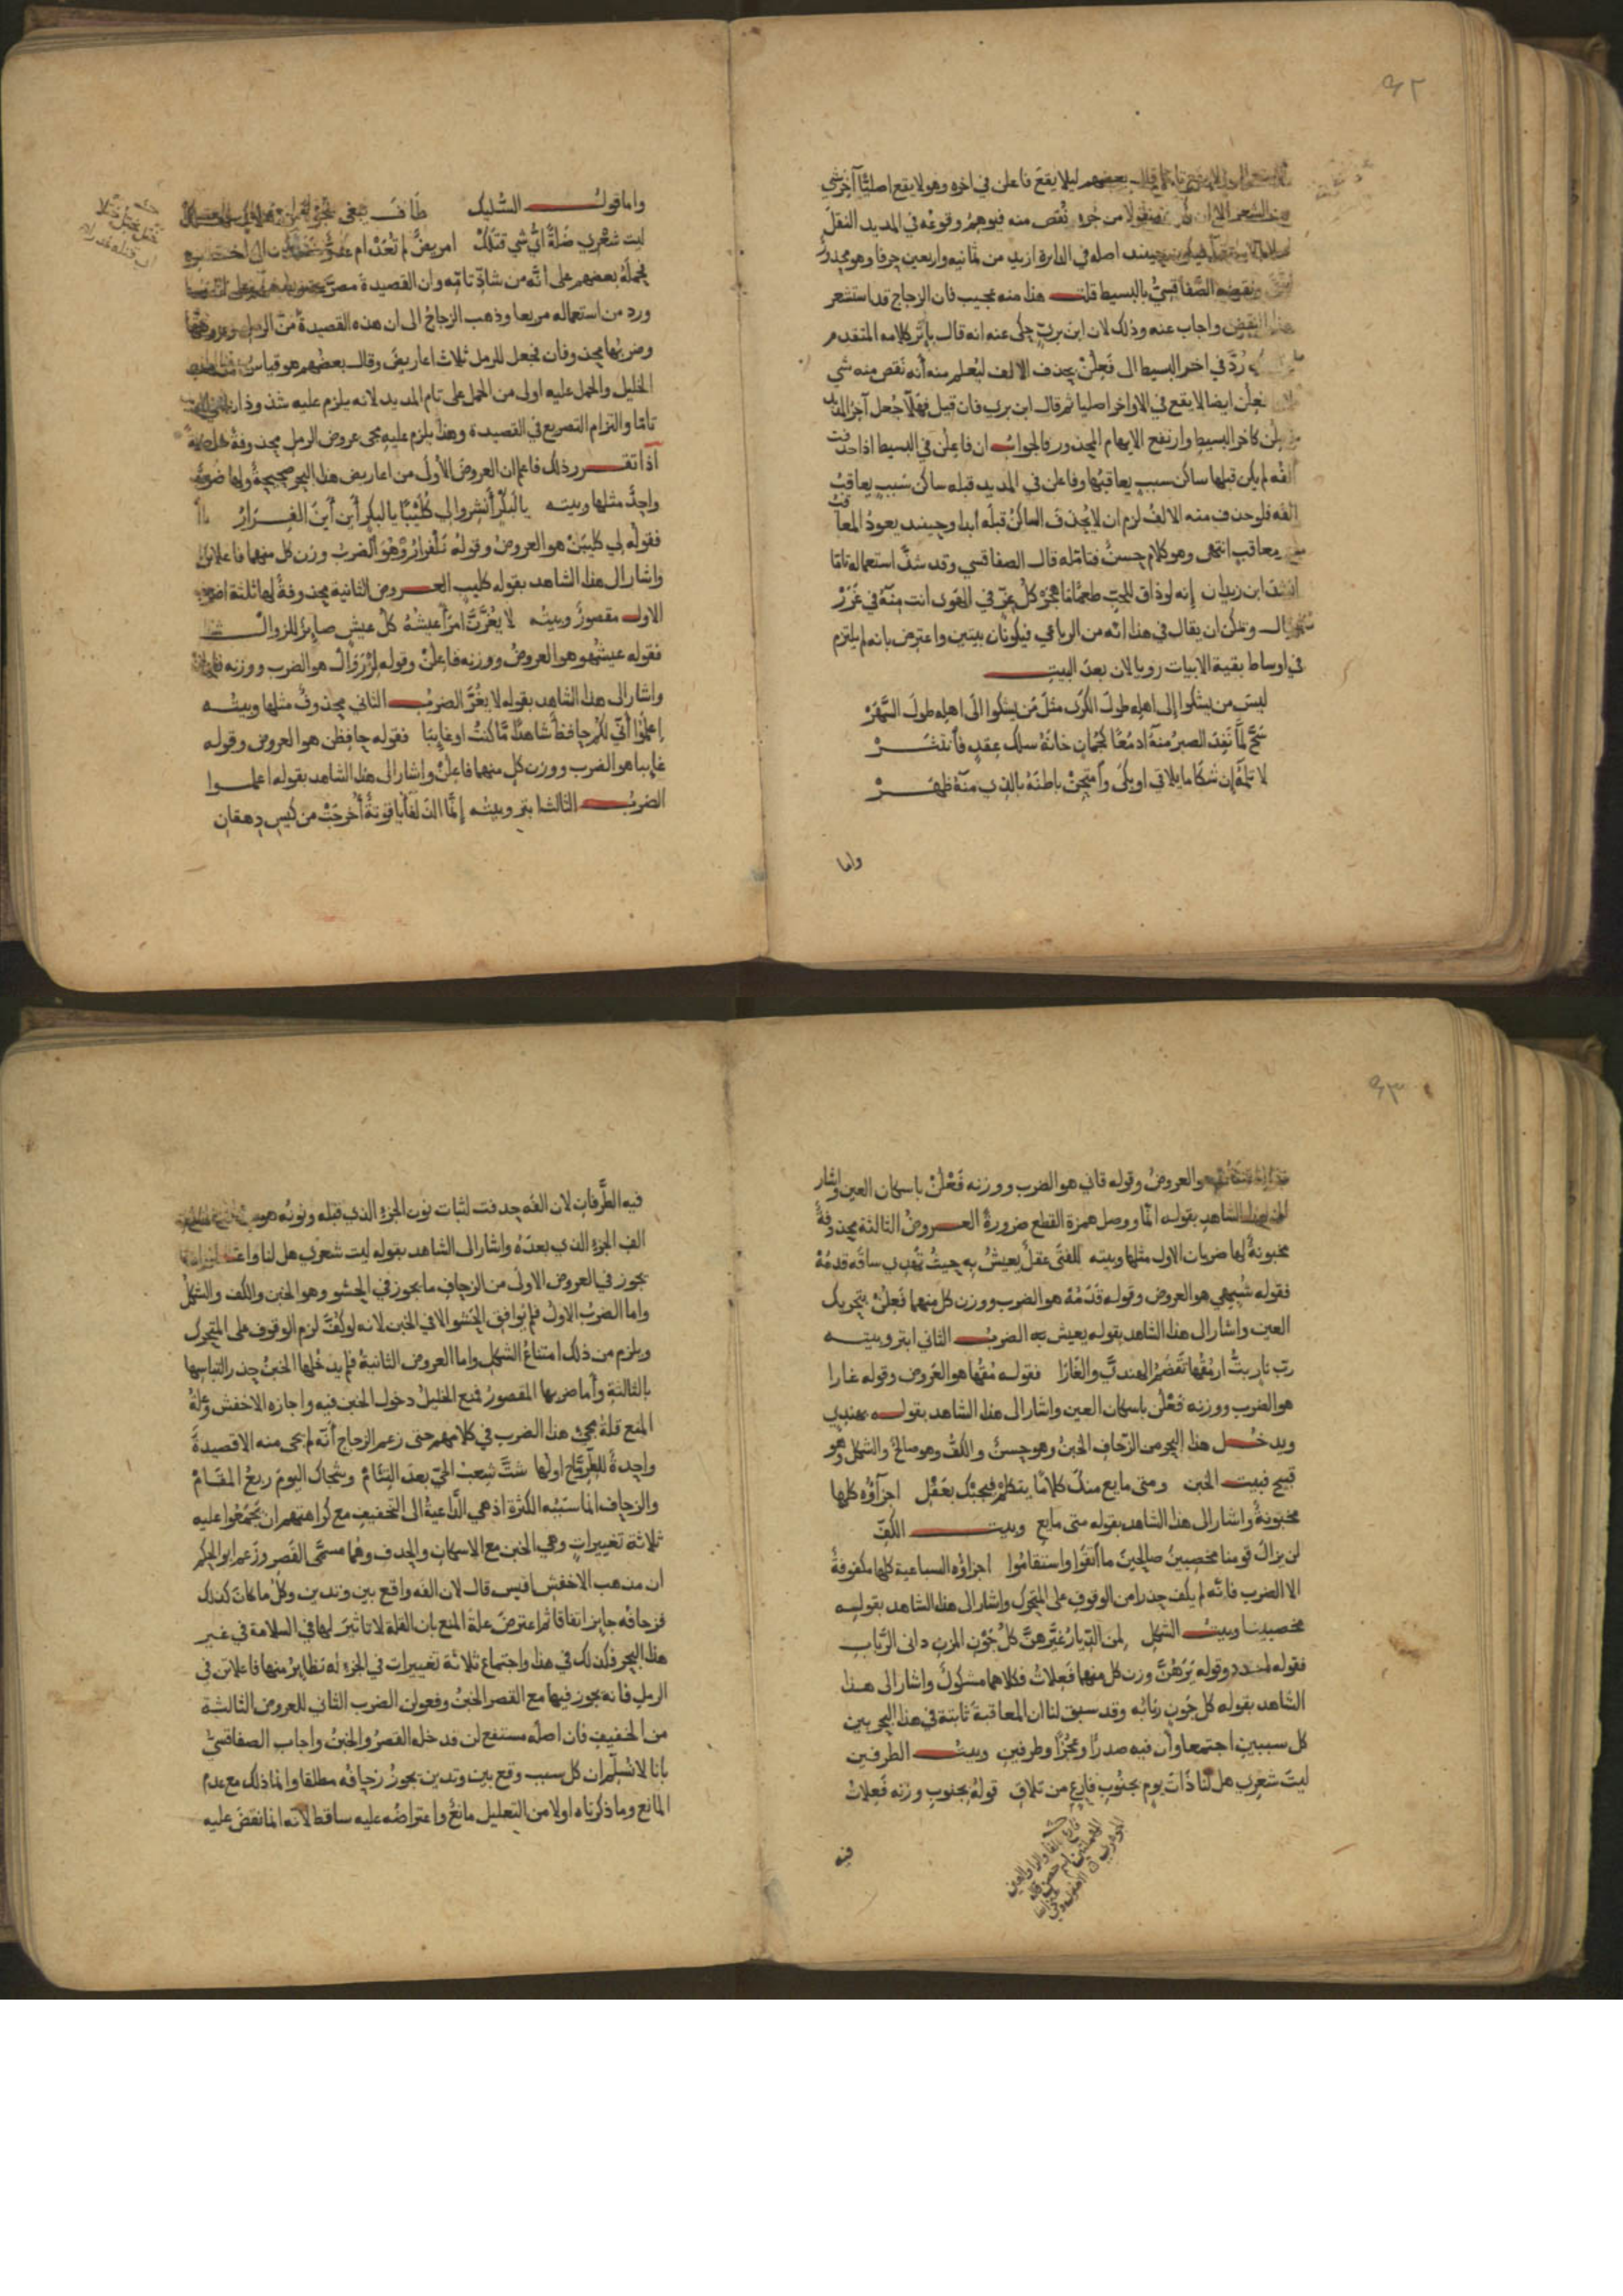 ٤٢
بعضهم ليلا يقع فاعلن في اخره وهو لا يقع اصليا آخر شي
من الشعر منقولا من جزء نُقص منه فيوهم وقوعه في المديد النقل
حينيد اصله في الدايرة ازيد من ثمانيه واربعين حرفا وهو محذور
ونقضه الصفاقسي بالبسيط قلت هذا منه عجيب فان الزجاج قد استشعر
هذا النقض واجاب عنه وذلك لان ابن بري حكى عنه انه قال باثر كلامه المتقدم
رُدّ في اخر البسيط الى فَعِلُنْ بحذف الالف ليُعلم منه أنه نَقص منه شي
فعِلُن ايضا لا يقع في الاواخر اصليا ثم قال ابن بري فان قيل فهلّا جُعل آخر المديد
فعِلُن كاخر البسيط وارتفع الايهام المحذور فالجواب ان فاعلن في البسيط اذا حذفت
الفُه لم يكن قبلها ساكن سبب يعاقبُها وفاعلن في المديد قبله ساكن سَبب يعاقبُ
الفه فلو حذف منه الالفُ لزم ان لا يُحذفَ الساكنُ قبلَه أبدا وحينيد يعودُ المعاقبُ
يعاقب انتهى وهو كلام حسنٌ فتامّله قال الصفاقسي وقد شذّ استعماله تامّا
انشد ابن زيدان إنه لو ذاق للحبّ طعمًا ما هَجَرْ كلُّ عِزّ في الهَوى انت منهُ في غَرَرْ
قال ويمكن ان يقال في هذا انّه من الرباعي فيكونان بيتين واعترض بانه لم يلتزم
في اوساط بقية الابيات رويا لان بعدَ البيت
ليسَ من يشكوا إلى اهلِه طولَ الكَرى مثلَ مَن يشكوا الَى اهلِه طولَ السَّهَرْ
سَحَّ لمّا نَفِدَ الصبرُ منهُ ادمُعًا كجُمانٍ خانَهُ سلكُ عِقدٍ فانتَثَرْ
لا تلمهُ إن شكا ما يلاقي او بكى وامتحِنْ باطنَهُ بالذي منهُ ظهَرْ
واما
واما قولُ السُّلَيك طَافَ يبغي نجوةً
ليت شعْري ضَلةً ايُّ شي قتَلكْ امريضٌ لم تُعَدْ ام عدوٌّ خَتَلكْ
فحمَلَهُ بعضهم على انّه من شاذِّ تامّه وان القصيدة مصرّعة
ورد من استعماله مربعا وذهب الزجاجُ الى ان هذه القصيدةَ من الرمل وعروضُها
وضربُها محذوفان فجعل للرمل ثلاث اعاريضَ وقال بعضُهم هو قياسُ مذهب
الخليل والحمل عليه اولى من الحمل على تام المديد لانه يلزم عليه شذوذان
تامّا والتزام التصريع في القصيدة وهذا يلزم عليه مجى عروض الرمل محذوفةً
آذا تقرر ذلك فاعلم ان العروضَ الأولَى من اعاريض هذا البحر صحيحةٌ ولها ضربٌ
واحدٌ مثلها وبيته يا لَبَكْرٍ أَنشِروا لي كُلَيْبًا يا لبكرٍ أين أينَ الفِرارُ
فقولُه لي كليبَنْ هو العروضُ وقولُه نَلْفرارُوْ هُوَ الضربُ وزن كل منهما فاعلاتن
واشار الى هذا الشاهد بقوله كليب العروض الثانية محذوفةٌ لها ثلثة اضرب
الاول مقصورٌ وبيتُه لا يَغُرَّنَّ امرَأً عيشُهُ كلُّ عيشٍ صايِرٌ للزوالْ
فقوله عيشُهُو هو العروضُ ووزنه فاعلنْ وقوله لزْزَوَالْ هو الضرب ووزنه فاعلانْ
واشار الى هذا الشاهد بقوله لا يَغُرَّ الضربُ الثاني محذوفٌ مثلها وبيتُه
إعلمُوا أنّي لكُم حافظٌ شاهدًا مّا كنتُ او غايِبَا فقوله حافِظُن هو العروض وقوله
غايبا هو الضرب ووزن كل منهما فاعلنْ واشار الى هذا الشاهد بقوله اعلموا
الضربُ الثالث ابتر وبيته إنّما الذلفَآءُ ياقوتةٌ أُخرِجَتْ من كيسِ دهقانِ
٤٣
هو العروضُ وقوله قاني هو الضرب ووزنه فَعْلُنْ باسكان العين واشار
الى هذا الشاهد بقوله انّما ووصل همزة القطع ضرورةً العروضُ الثالثة محذوفةٌ
مخبونةٌ لها ضربان الاول مثلها وبيته للفتَى عقلٌ يعيشُ بِهِ حيثُ تَهدِي ساقَه قدَمُهْ
فقوله شُبِهِي هو العروض وقوله قَدَمُهْ هو الضرب ووزن كل منهما فَعِلُنْ بتحريك
العين واشار الى هذا الشاهد بقوله يعيش به الضربُ الثاني ابتر وبيته
ربّ نارٍ بتُّ ارمُقُها تَقضَمُ الهنديَّ والغَارَا فقوله مُقُها هو العَروض وقوله غارا
هو الضرب ووزنه فَعْلُن باسكان العين واشار الى هذا الشاهد بقوله هندي
ويدخل هذا البحر من الزحاف الخبنُ وهو حسنٌ والكفُّ وهو صالحٌ والشكل وهو
قبيح فبيت الخبن ومتى ما يعِ منكَ كلامًا يتكلّمْ فيجبْكَ بعَقْلِ اجزآؤُه كلها
مخبونةٌ واشار الى هذا الشاهد بقوله متى ما يع وبيت الكفّ
لن يزالَ قومنا مخصبينَ صالحينَ ما اتّقَوا واستقامُوا اجزاؤه السباعية كلها مكفوفةٌ
الا الضرب فانّه لم يكف حذرا من الوقوف على المتحرك واشار الى هذا الشاهد بقوله
مخصبينا وبيت الشكل لِمن الدّيارُ غيَّرهُنَّ كلُّ جَوْنِ المزنِ دانِى الرَّبابِ
وقوله يَرَهُنَّ وزن كل منهما فَعِلاتُ فكلاهما مشكولٌ واشار الى هذا
الشاهد بقوله كل جَون ربَابُه وقد سبق لنا ان المعاقبةَ ثابتة في هذا البحر بين
كل سببين اجتمعا وان فيه صدرًا وعجُزًا وطرفينِ وبيت الطرفين
ليتَ شعْرِي هل لنا ذَاتَ يومٍ بجنُوبِ فارِعٍ من تلاقِ قولُهُ بجنوبِ وزنه فَعِلاتُ
فيه
فيه الطَّرفانِ لان الفَه حذفت لثبات نون الجزء الذي قبله ونونُه
الف الجزء الذي بعدَهُ واشار الى الشاهد بقوله ليت شعري هل لنا
يجوز في العروض الاولى من الزحاف ما يجوز في الحشو وهو الخبن والكف والشكلُ
واما الضربُ الاولُ فلم يُوافق الحَشو الا في الخبن لانه لو كُفَّ لزم الوقوف على المتحرك
ويلزم من ذلك امتناعُ الشكل واما العروض الثانيةُ فلم يدخُلها الخبنُ حذر التباسِها
بالثالثة وأما ضربها المقصورُ فمنع الخليلُ دخول الخبن فيه واجازه الاخفش وعلةُ
المنع قلةُ مجىِ هذا الضرب في كلامهم حتى زعم الزجاج أنّه لم يجى منه الا قصيدةٌ
واحِدةٌ للطِّرِمّاح اولُها شتَّ شِعبُ الحيّ بعدَ التِئامْ وشجاك اليومَ ربعُ المقَامْ
والزحاف انما سَببُه الكثرة اذ هي الدّاعيةُ الى التخفيف مع كراهتهم ان يجمَعُوا عليه
ثلاثة تغييراتٍ وهي الخبن مع الاسكانِ والحذف وهُما مسمّى القَصر وزَعم ابو الحكم
ان مذهب الاخفش اقيس قال لان الفَه واقع بين وتدين وكلُّ ما كان كذلك
فزحافُه جايز اتفاقا ثم اعترضَ علةَ المنع بان القلةَ لا تاثيرَ لها في السلامة في غير
هذا البحر فكذلك في هذا واجتماع ثلاثة تغييرات في الجزء له نظايرُ منها فاعلاتن في
الرملِ فانه يجوز فيها مع القصر الخبنُ وفعولن الضرب الثاني للعروض الثالثة
من الخفيف فان اصلَه مستفع لن قد خله القصرُ والخبنُ واجاب الصفاقسيّ
بانا لا نُسلّم ان كل سبب وقع بين وتدين يجوزُ زحافُه مطلقا وانما ذلك مع عدم
المانع وما ذكرناه اولا من التعليل مانعٌ واعتراضُه عليه ساقط لانه انما نقضَ عليه